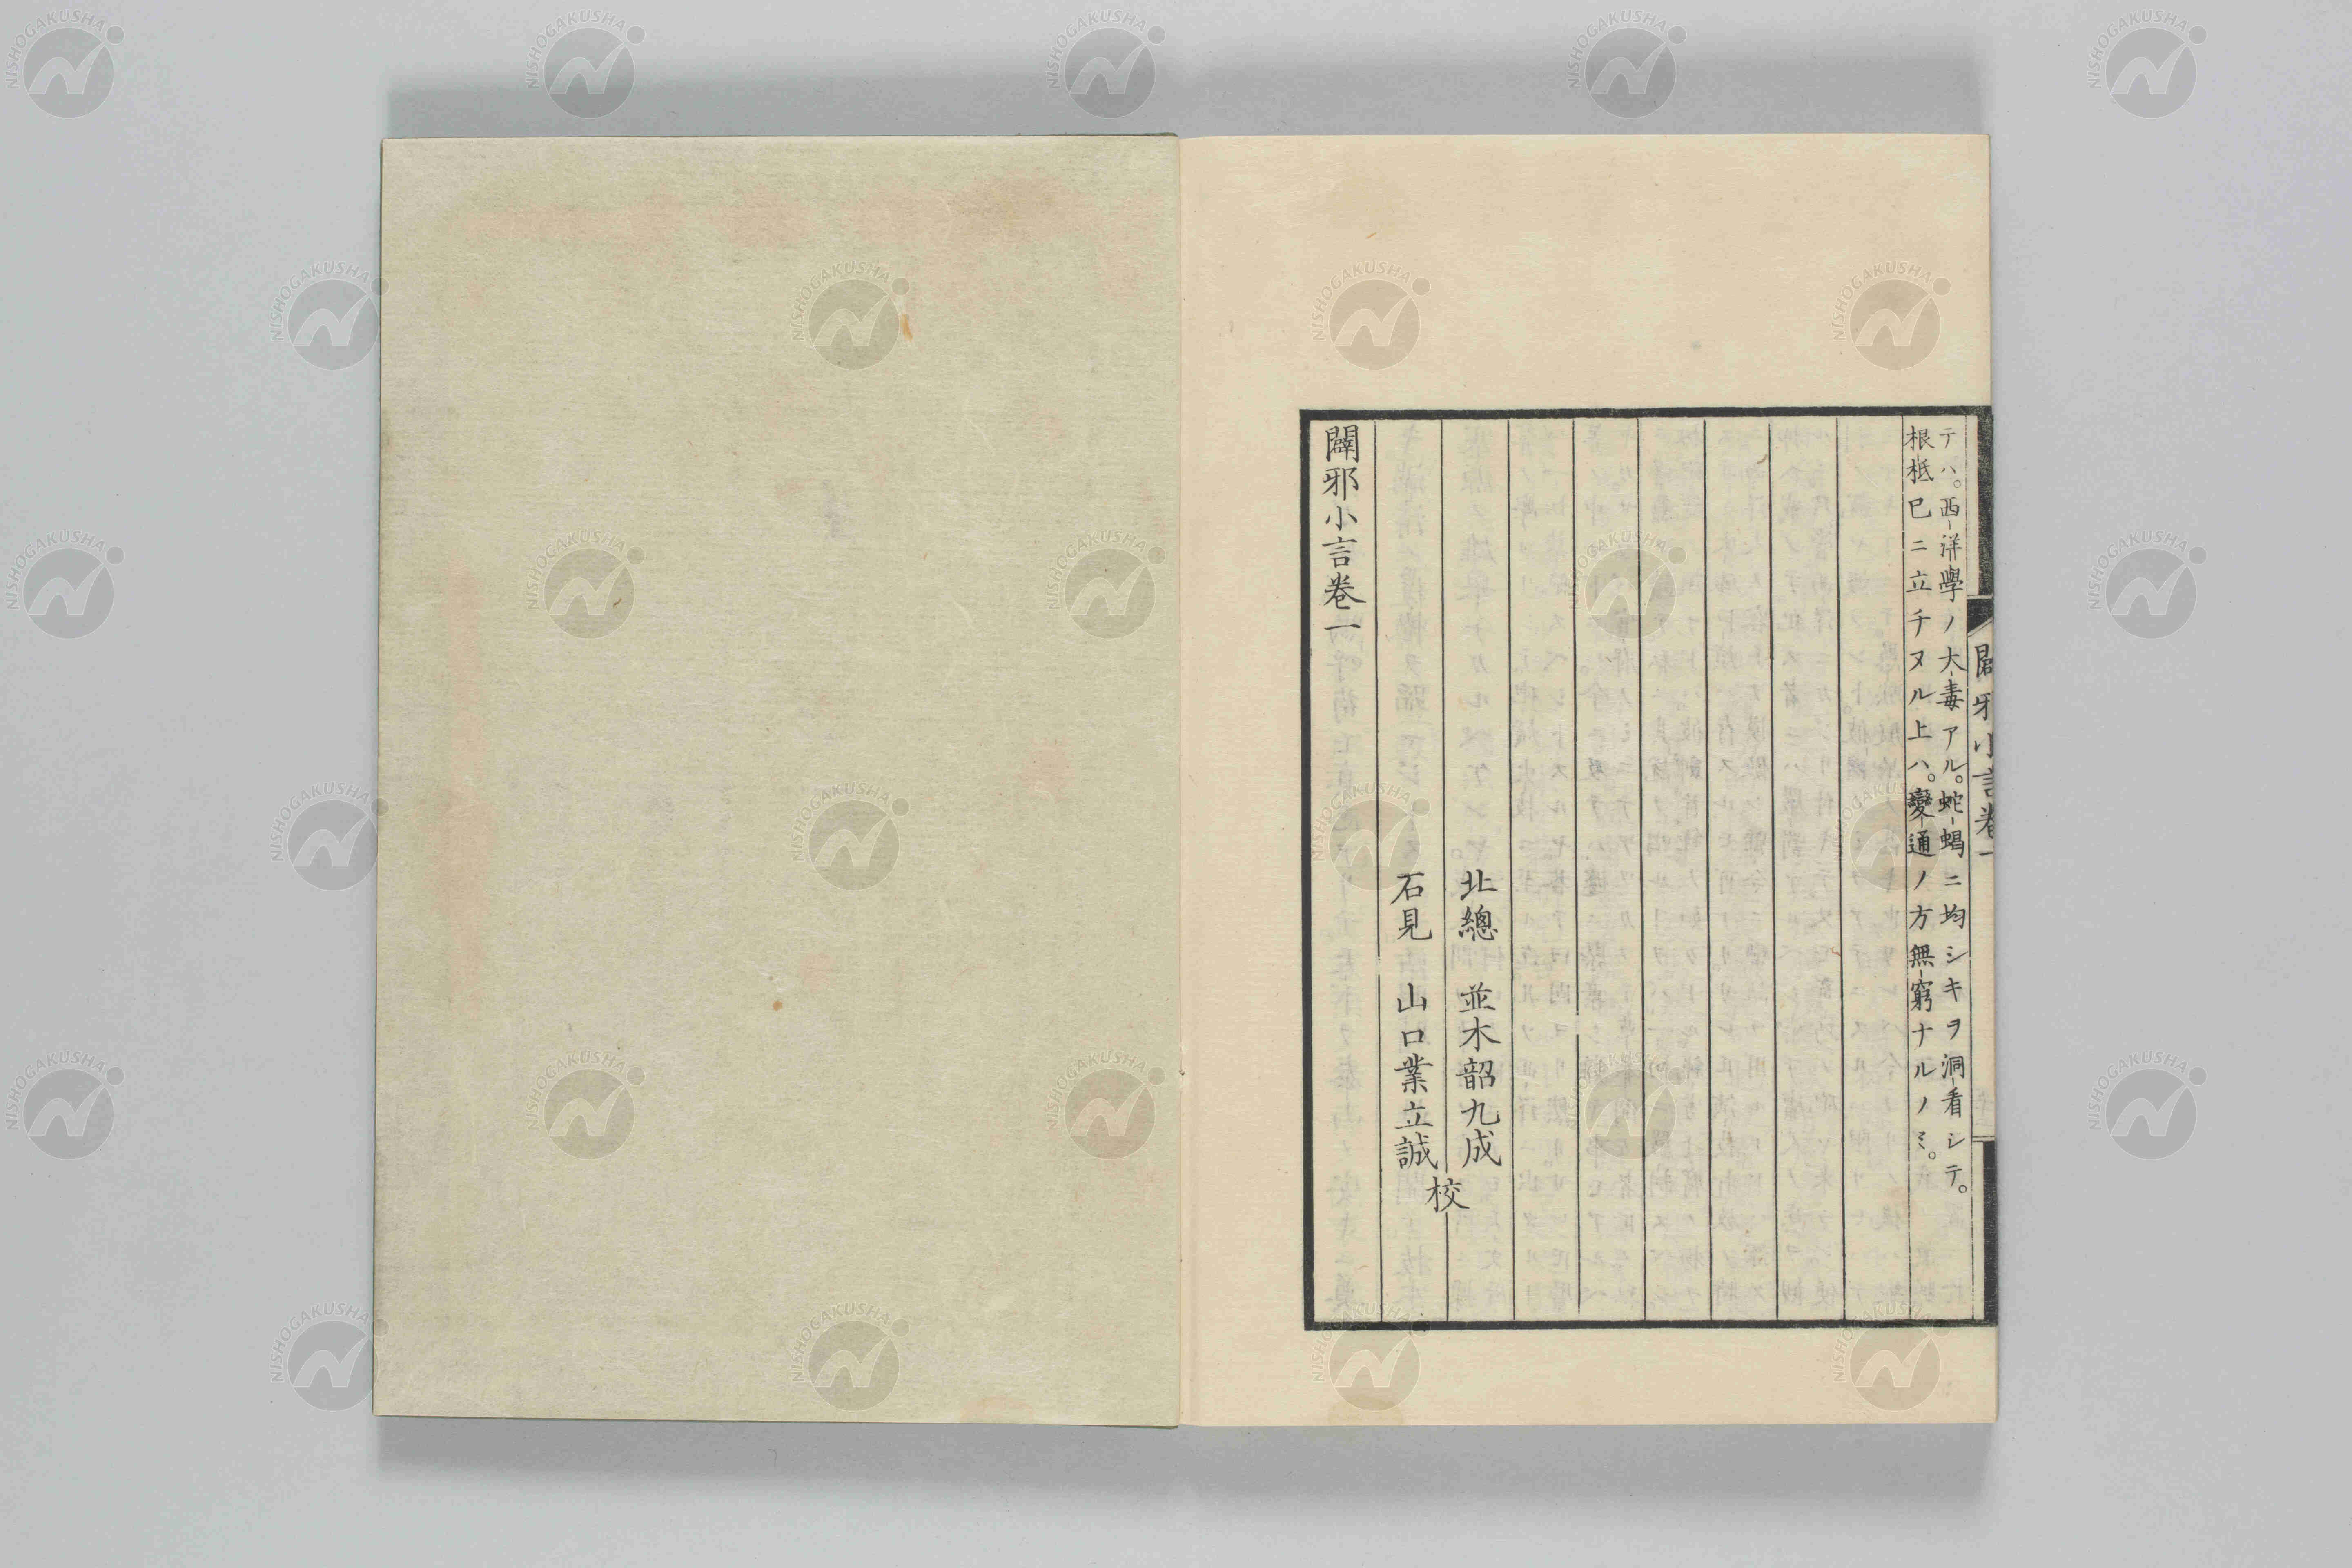 闢邪小言卷一
テハ。西洋學ノ大毒アル。蛇蝎ニ均シキヲ洞看シテ。
根柢已ニ立チヌル上ハ。變通ノ方無窮ナルノミ。
北總 並木韶九成
石見 山口業立誠
校
闢邪小言卷一
NISHOGAKUSHA